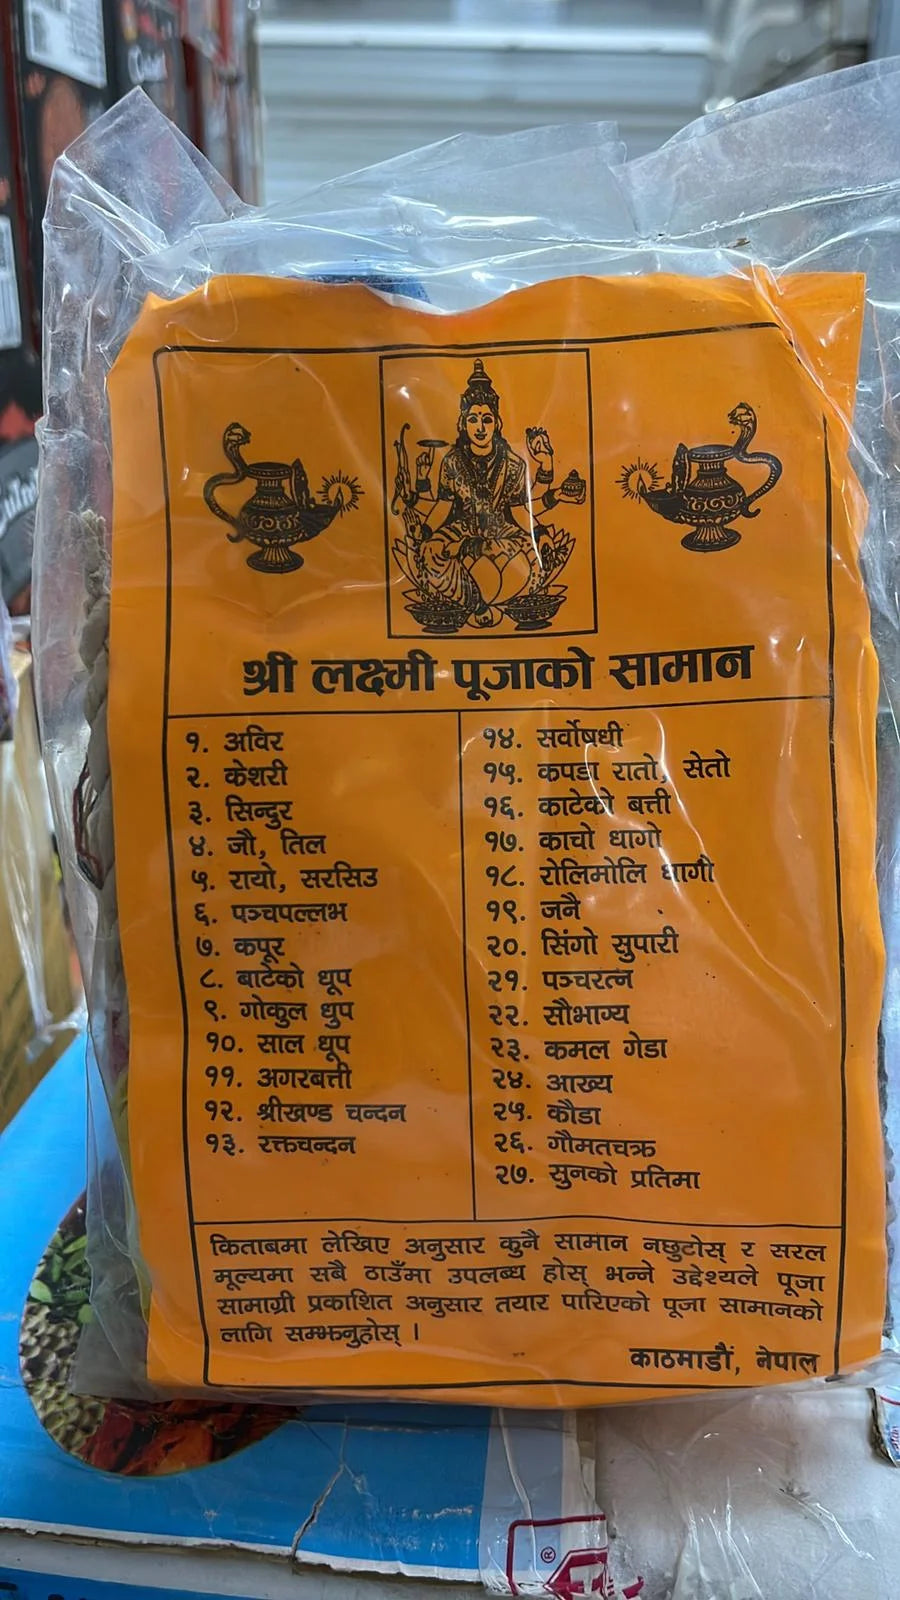 श्री लक्ष्मी पूजाको सामान
१. अविर
२. केशरी
३. सिन्दुर
४. जौ, तिल
५. रायो, सरसिउ
६. पञ्चपल्लभ
७. कपूर
८. बाटेको धूप
९. गोकुल धुप
१०. साल धूप
११. अगरबत्ती
१२. श्रीखण्ड चन्दन
१३. रक्तचन्दन
१४. सर्वोषधी
१५. कपडा रातो, सेतो
१६. काटेको बत्ती
१७. काचो धागो
१८. रोलिमोलि धागो
१९. जनै
२०. सिंगो सुपारी
२१. पञ्चरत्न
२२. सौभाग्य
२३. कमल गेडा
२४. आख्य
२५. कौडा
२६. गौमतचक्र
२७. सुनको प्रतिमा
किताबमा लेखिए अनुसार कुनै सामान नछुटोस् र सरल
मूल्यमा सबै ठाउँमा उपलब्ध होस् भन्ने उद्देश्यले पूजा
सामाग्री प्रकाशित अनुसार तयार पारिएको पूजा सामानको
लागि सम्झनुहोस् ।
काठमाडौं, नेपाल